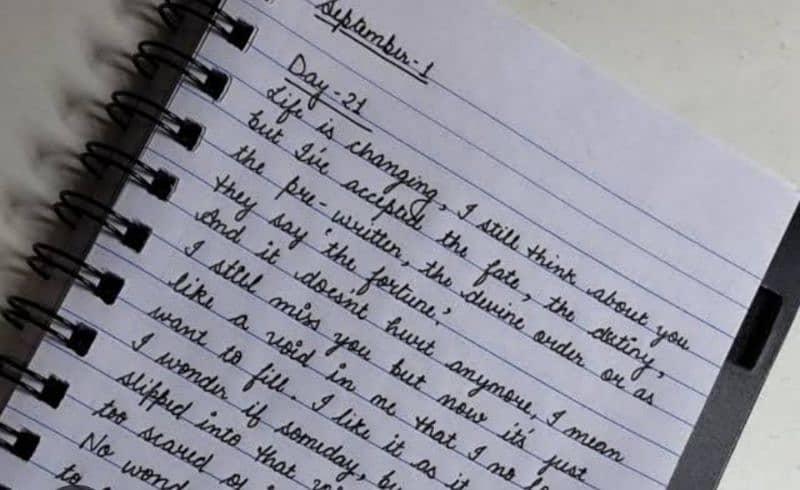 September-1
Day-21
Life is changing, I still think about you
but I've accepted the fate, the destiny,
the pre-written, the devine order or as
they say 'the fortune'.
And it doesnt hurt anymore, I mean
I still miss you but now it's just
like a void in me that I no
want to fill. I like it as it
I wonder if someday,
slipped into that
too scared of
No
to